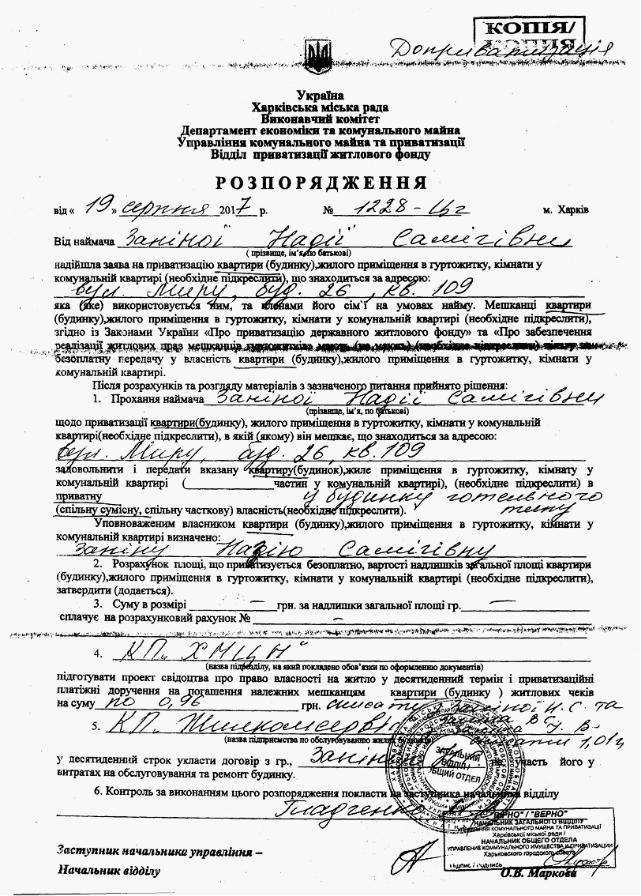 КОПІЯ/
КОПИЯ
Доприватизація
Україна
Харківська міська рада
Виконавчий комітет
Департамент економіки та комунального майна
Управління комунального майна та приватизації
Відділ приватизації житлового фонду
РОЗПОРЯДЖЕННЯ
від « 19 » серпня 2017 р. № 1228- м. Харків
Від наймача Заніної Надії Самігівни
( прізвище, ім'я, по батькові)
надійшла заява на приватизацію квартири (будинку),жилого приміщення в гуртожитку, кімнати у
комунальній квартирі (необхідне підкреслити), що знаходиться за адресою:
вул. Миру, буд. 26, кв. 109
яка (яке) використовується ним, та членами його сім'ї на умовах найму. Мешканці квартири
(будинку),жилого приміщення в гуртожитку, кімнати у комунальній квартирі (необхідне підкреслити),
згідно із Законами України «Про приватизацію державного житлового фонду» та «Про забезпечення
реалізації житлових прав мешканців гуртожитків» мають (не мають) (необхідне підкреслити)
безоплатну передачу у власність квартири (будинку),жилого приміщення в гуртожитку, кімнати у
комунальній квартирі.
Після розрахунків та розгляду матеріалів з зазначеного питання прийнято рішення:
1. Прохання наймача Заніної Надії Самігівни
(прізвище, ім'я, по батькові)
щодо приватизації квартири(будинку), жилого приміщення в гуртожитку, кімнати у комунальній
квартирі(необхідне підкреслити), в якій (якому) він мешкає, що знаходиться за адресою:
вул. Миру буд. 26, кв. 109
задовольнити і передати вказану квартиру(будинок),жиле приміщення в гуртожитку, кімнату у
комунальній квартирі ( частин у комунальній квартирі), (необхідне підкреслити) в
приватну у будинку готельного
(спільну сумісну, спільну часткову) власність(необхідне підкреслити). типу
Уповноваженим власником квартири (будинку),жилого приміщення в гуртожитку, кімнати у
комунальній квартирі визначено:
Заніну Надію Самігівну
2. Розрахунок площі, що приватизується безоплатно, вартості надлишків загальної площі квартири
(будинку),жилого приміщення в гуртожитку, кімнати у комунальній квартирі (необхідне підкреслити),
затвердити (додається).
3. Суму в розмірі — грн. за надлишки загальної площі гр. —
сплачує на розрахунковий рахунок № —
4. КП „ХМЦН"
(назва підрозділу, на який покладено обов'язки по оформленню документів)
підготувати проект свідоцтва про право власності на житло у десятиденний термін і приватизаційні
платіжні доручення на погашення належних мешканцям квартири (будинку ) житлових чеків
на суму по 0,96 грн. списати з Заніної Н.С. та
5. КП „Жилкомсервіс"
(назва підприємства по обслуговуванню житлового будинку) 1,01 г
у десятиденний строк укласти договір з гр., Заніною на участь його у
витратах на обслуговування та ремонт будинку.
6. Контроль за виконанням цього розпорядження покласти на заступника начальника відділу
Гладченко
ЗАГАЛЬНИЙ
ВІДДІЛ /
ОБЩИЙ ОТДЕЛ
"ВІРНО" / "ВЕРНО"
НАЧАЛЬНИК ЗАГАЛЬНОГО ВІДДІЛУ
УПРАВЛІННЯ КОМУНАЛЬНОГО МАЙНА ТА ПРИВАТИЗАЦІЇ
Харківської міської ради /
НАЧАЛЬНИК ОБЩЕГО ОТДЕЛА
УПРАВЛЕНИЕ КОММУНАЛЬНОГО ИМУЩЕСТВА И ПРИВАТИЗАЦИИ
Харьковского городского совета
Підпис / подпись
Заступник начальника управління –
Начальник відділу О.В. Маркова